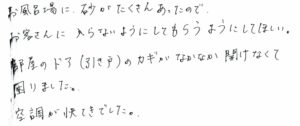 お風呂場に、砂がたくさんあったので、
お客さんに入らないようにしてもらうようにしてほしい。
部屋のドア(引き戸)のカギがなかなか開けなくて
困りました。
空調が快てきでした。